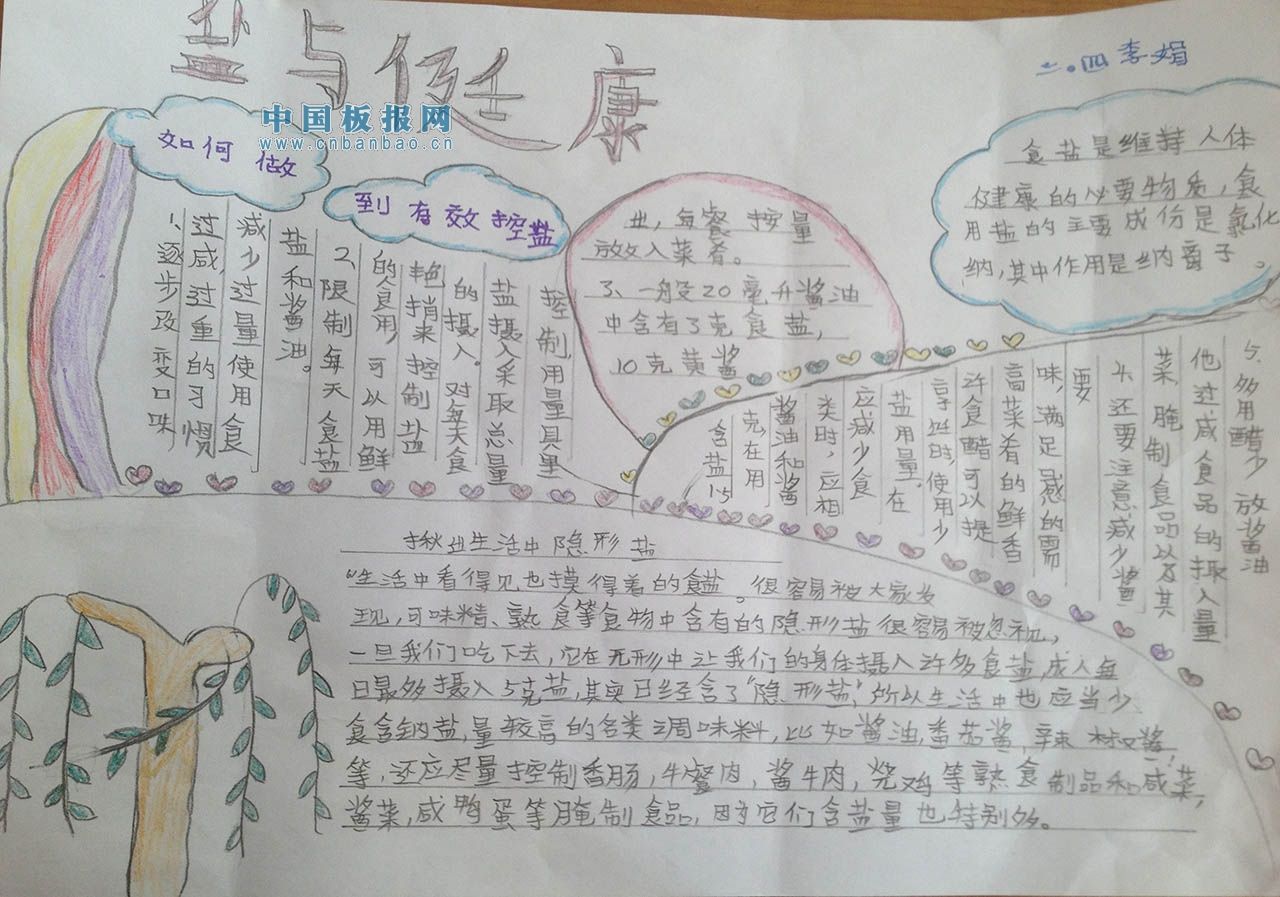 盐与健康
中国板报网
www.cnbanbao.cn
二.四 李娟
如何做
到有效控盐
1、逐步改变口味，
过咸过重的习惯
减少过量使用食
盐和酱油。
2、限制每天食盐
的食用，可以用鲜
艳捎来控制盐
的摄入。对每天食
盐摄入采取总量
控制，用量具量
业，每餐按量
放入菜肴。
3、一般20毫升酱油
中含有3克食盐，
10克黄酱
含盐15
克，在用
酱油和酱
类时，应相
应减少食
盐用量，在
烹饪时，使用少
许食醋可以提
高菜肴的鲜香
味，满足感的需
要
4、还要注意减少酱
菜，腌制食品以及其
他过咸食品的摄入量
5、多用醋少放酱油
食盐是维持人体
健康的必要物质，食
用盐的主要成份是氯化
纳，其中作用是纳离子。
揪出生活中隐形盐
“生活中看得见也摸得着的食盐。很容易被大家发
现，可味精、熟食等食物中含有的隐形盐很容易被忽视，
一旦我们吃下去，它在无形中让我们的身体摄入许多食盐，成人每
日最多摄入5克盐，其实已经含了“隐形盐”，所以生活中也应当少
食含钠盐，量较高的各类调味料，比如酱油，番茄酱，辣椒酱，
等，还应尽量控制香肠，牛餐肉，酱牛肉，烧鸡等熟食制品和咸菜，
酱菜，咸鸭蛋等腌制食品，因为它们含盐量也特别多。